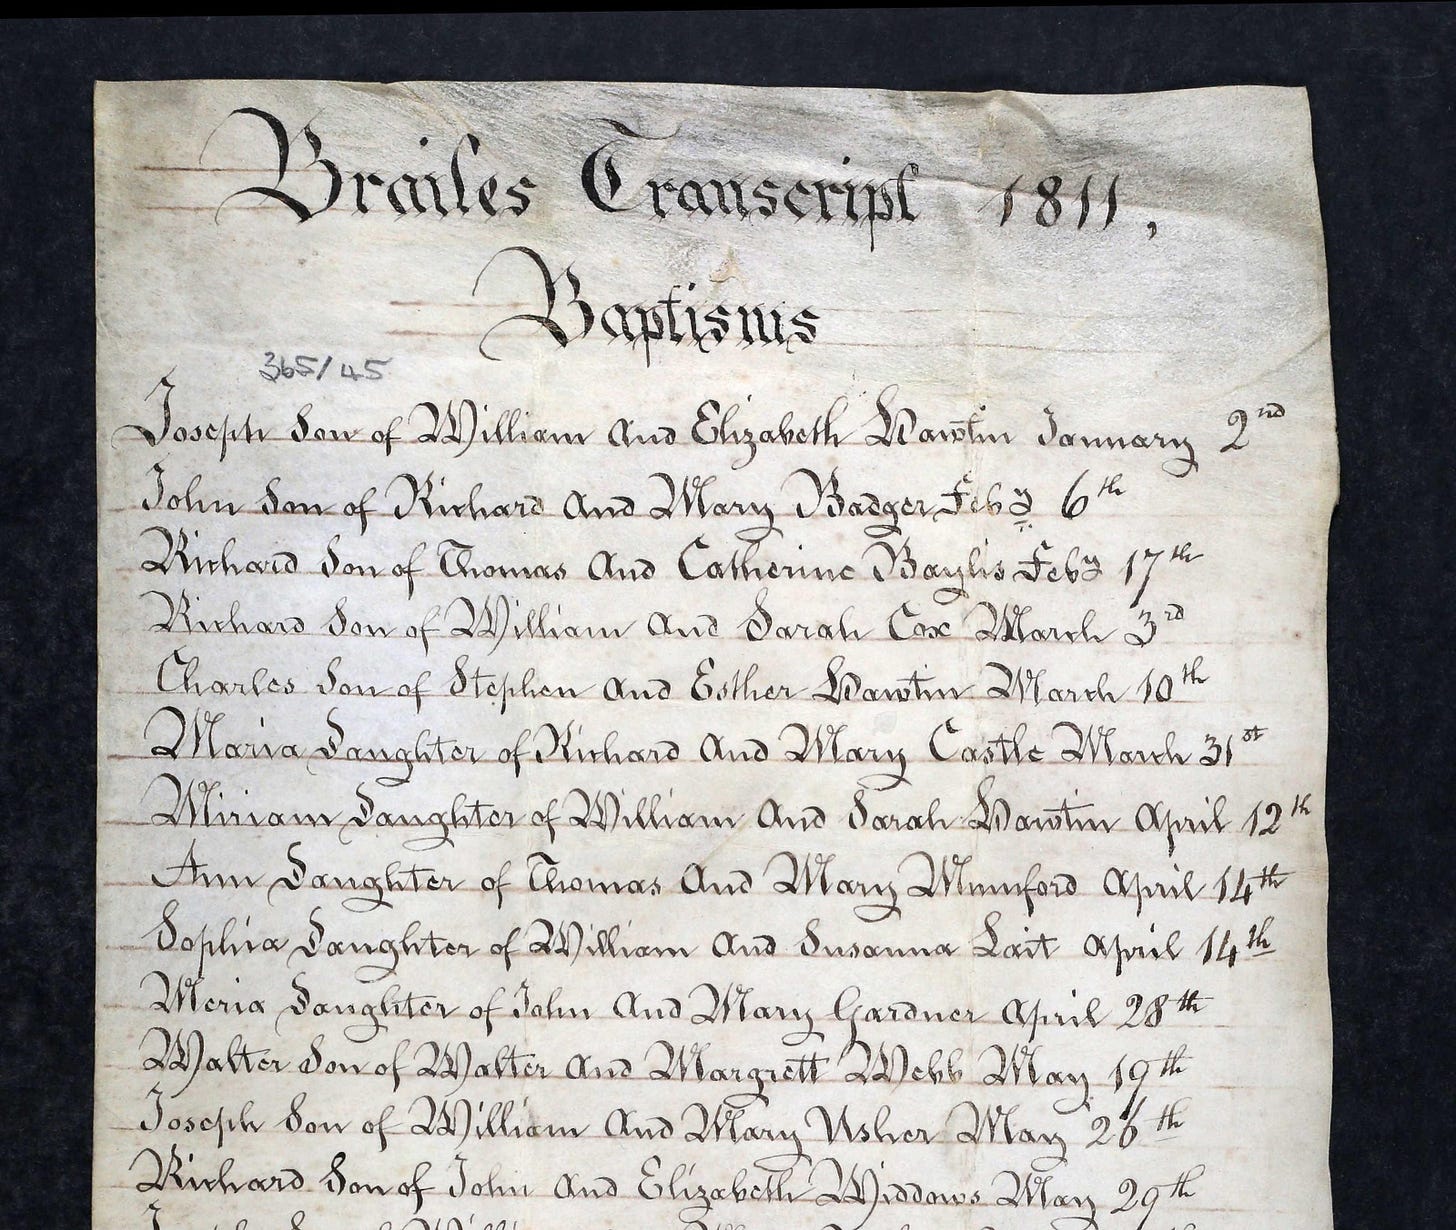 Brailes Transcript 1811,
Baptisms
365/45
Joseph Son of William and Elizabeth Hawtin January 2nd
John Son of Richard and Mary Badger Feby 6th
Richard Son of Thomas and Catherine Baylis Feby 17th
Richard Son of William and Sarah Cox March 3rd
Charles Son of Stephen and Esther Hawtin March 10th
Maria Daughter of Richard and Mary Castle March 31st
Miriam Daughter of William and Sarah Hawtin April 12th
Ann Daughter of Thomas and Mary Mumford April 14th
Sophia Daughter of William and Susanna Lait April 14th
Meria Daughter of John and Mary Gardner April 28th
Walter Son of Walter and Margrett Webb May 19th
Joseph Son of William and Mary Usher May 26th
Richard Son of John and Elizabeth Widdows May 29th